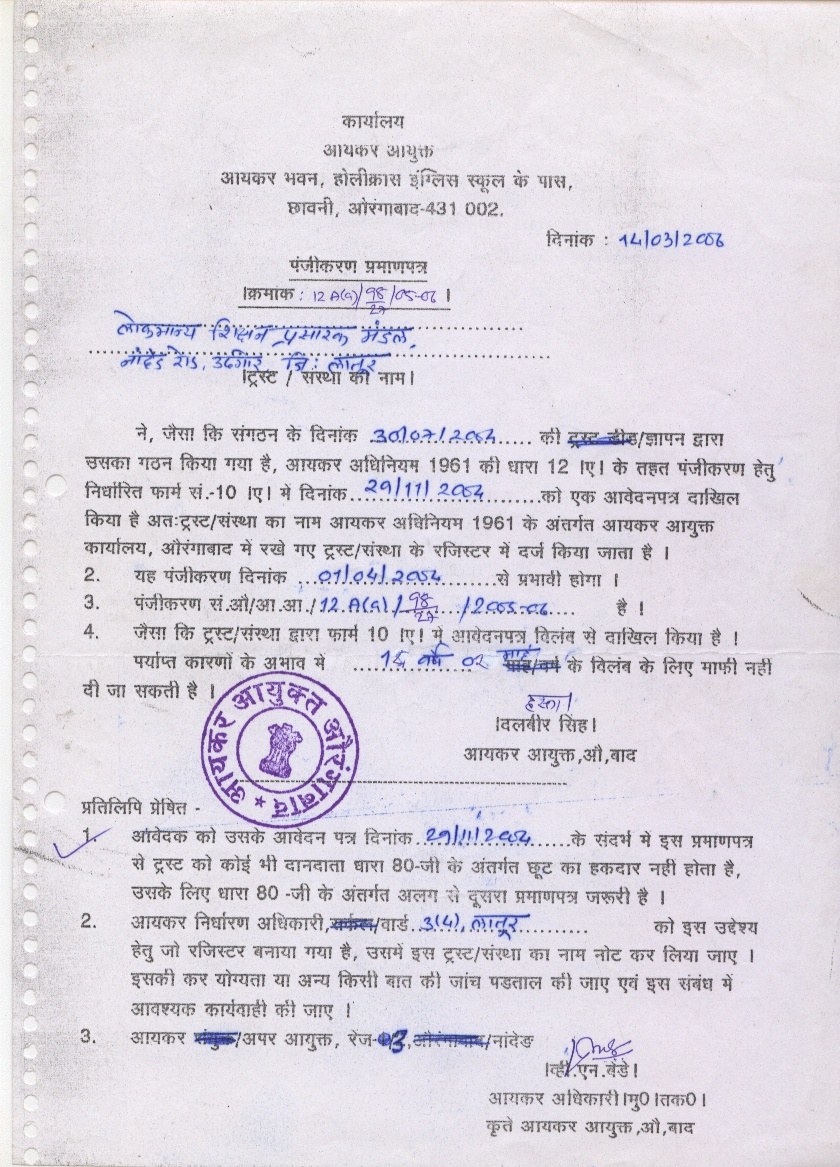 कार्यालय
आयकर आयुक्त
आयकर भवन, होलीक्रास इंग्लिस स्कूल के पास,
छावनी, औरंगाबाद-431 002.
दिनांक : 14/03/2006
पंजीकरण प्रमाणपत्र
।क्रमांक : 12 A(a)/98/27/05-06 ।
लोकमान्य शिक्षन प्रसारक मंडल,
नांदेड रोड, उदगीर जि: लातूर
।ट्रस्ट / संस्था का नाम।
ने, जैसा कि संगठन के दिनांक 30/07/ की ट्रस्ट डीड/ज्ञापन द्वारा
उसका गठन किया गया है, आयकर अधिनियम 1961 की धारा 12 ।ए। के तहत पंजीकरण हेतु
निर्धारित फार्म सं.-10 ।ए। में दिनांक 29/11/ को एक आवेदनपत्र दाखिल
किया है अतःट्रस्ट/संस्था का नाम आयकर अधिनियम 1961 के अंतर्गत आयकर आयुक्त
कार्यालय, औरंगाबाद में रखे गए ट्रस्ट/संस्था के रजिस्टर में दर्ज किया जाता है ।
2. यह पंजीकरण दिनांक 01/04/ से प्रभावी होगा ।
3. पंजीकरण सं.औ/आ.आ./12.A(a)/98/27/2005-06 है ।
4. जैसा कि ट्रस्ट/संस्था द्वारा फार्म 10 ।ए। में आवेदनपत्र विलंब से दाखिल किया है ।
पर्याप्त कारणों के अभाव में वर्ष माह माह/वर्ष के विलंब के लिए माफी नही
दी जा सकती है ।
हस्ता।
।दलबीर सिंह।
आयकर आयुक्त,औ,बाद
आयकर आयुक्त औरंगाबाद
प्रतिलिपि प्रेषित -
1. आवेदक को उसके आवेदन पत्र दिनांक 29/11/ के संदर्भ मे इस प्रमाणपत्र
से ट्रस्ट को कोई भी दानदाता धारा 80-जी के अंतर्गत छूट का हकदार नही होता है,
उसके लिए धारा 80 -जी के अंतर्गत अलग से दूसरा प्रमाणपत्र जरूरी है ।
2. आयकर निर्धारण अधिकारी,सर्कल/वार्ड 3(4), लातूर को इस उद्देश्य
हेतु जो रजिस्टर बनाया गया है, उसमें इस ट्रस्ट/संस्था का नाम नोट कर लिया जाए ।
इसकी कर योग्यता या अन्य किसी बात की जांच पडताल की जाए एवं इस संबंध में
आवश्यक कार्यवाही की जाए ।
3. आयकर संयुक्त/अपर आयुक्त, रेंज-3,औरंगाबाद/नांदेड
।व्ही.एन.बेंडे।
आयकर अधिकारी।मु0।तक0।
कृते आयकर आयुक्त,औ,बाद